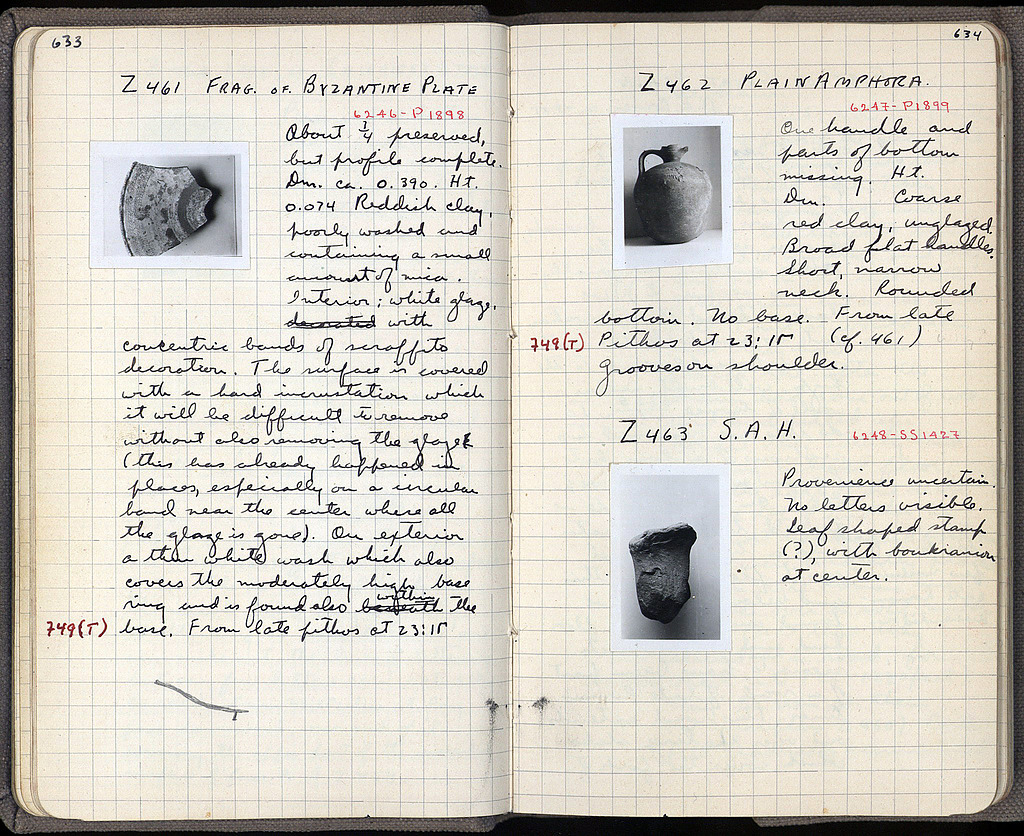 633
Z 461 FRAG. OF BYZANTINE PLATE
6246-P1898
About 3/4 preserved,
but profile complete.
Dm. ca. 0.390. Ht.
0.074 Reddish clay,
poorly washed and
containing a small
amount of mica.
Interior; white glaze,
decorated with
concentric bands of scraffito
decoration. The surface is covered
with a hard incrustation which
it will be difficult to remove
without also removing the glaze
(this has already happened in
places, especially on a circular
band near the center where all
the glaze is gone). On exterior
a thin white wash which also
covers the moderately high base
ring and is found also beneath within the
749(T) base. From late pithos at 23:ΙΓ
634
Z 462 PLAIN AMPHORA.
6247-P1899
One handle and
parts of bottom
missing. Ht.
Dm. Coarse
red clay, unglazed.
Broad flat handles.
Short, narrow
neck. Rounded
bottom. No base. From late
749(T) Pithos at 23:ΙΓ (cf. 461)
Grooves on shoulder.
Z 463 S.A.H.
6248-SS1427
Provenience uncertain.
No letters visible.
Leaf shaped stamp
(?), with boukranion
at center.